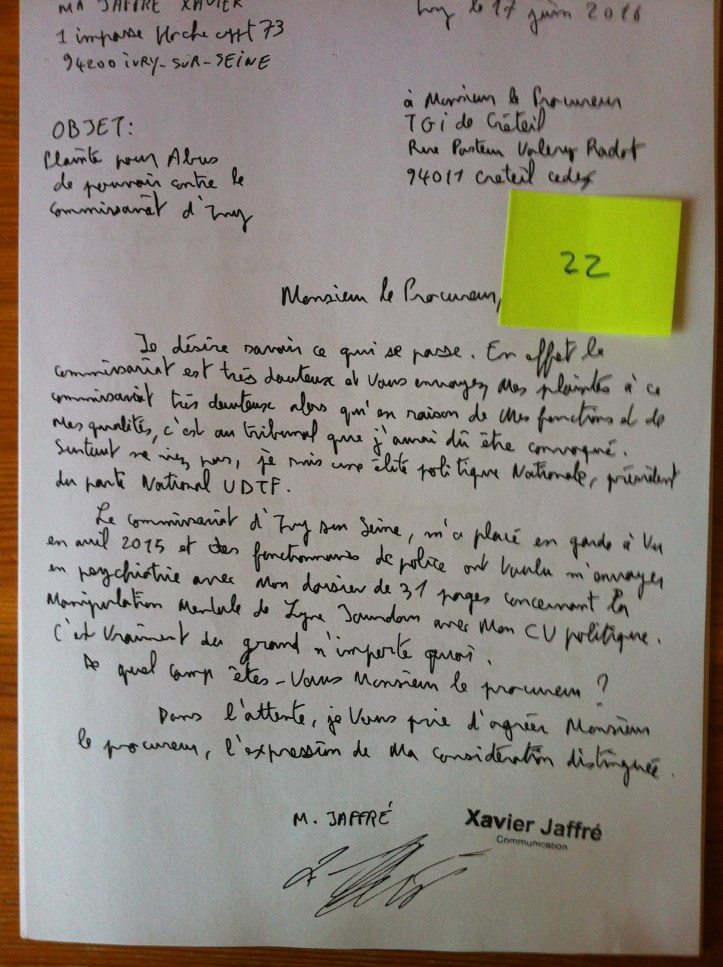 JAFFRÉ XAVIER
Ivry le 17 juin 2016
1 impasse Hoche appt 73
94200 IVRY-SUR-SEINE
à Monsieur le Procureur
TGI de Créteil
Rue Pasteur Valery Radot
94011 Créteil cedex
OBJET:
Plainte pour Abus
de pouvoir contre le
commissariat d'Ivry
22
Monsieur le Procureur,
Je désire savoir ce qui se passe. En effet le
commissariat est très douteux et vous envoyez mes plaintes à ce
commissariat très douteux alors qu'en raison de mes fonctions et de
mes qualités, c'est au tribunal que j'aurai dû être convoqué.
Surtout ne riez pas, je suis une élite politique Nationale, président
du parti National UDTF.
Le commissariat d'Ivry sur Seine, m'a placé en garde à Vu
en avril 2015 et des fonctionnaires de police ont voulu m'envoyer
en psychiatrie avec mon dossier de 31 pages concernant la
Manipulation Mentale de avec mon CV politique.
C'est vraiment du grand n'importe quoi.
A quel camp êtes-Vous Monsieur le procureur ?
Dans l'attente, je Vous prie d'agréer Monsieur
le procureur, l'expression de ma considération distinguée.
M. JAFFRÉ
Xavier Jaffré
Communication